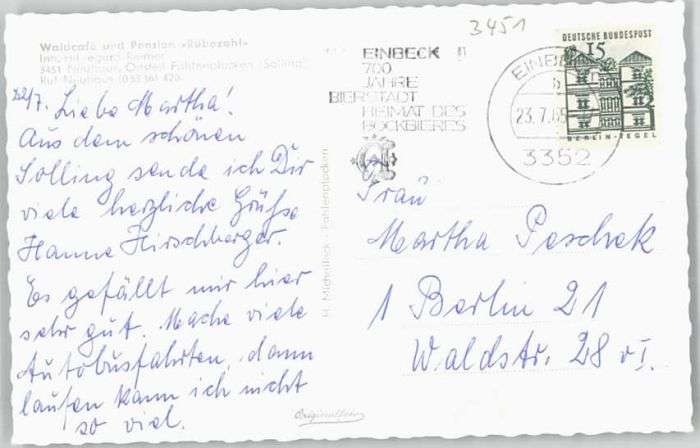 3451
Waldcafe und Pension »Rübezahl«
3451 Neuhaus, Ortsteil Fohlenplacken (Solling)
Ruf Neuhaus
22/7. Liebe Martha!
Aus dem schönen
Solling sende ich Dir
viele herzliche Grüße
Hanne Hirschberger.
Es gefällt mir hier
sehr gut. Mache viele
Autobusfahrten, denn
laufen kann ich nicht
so viel.
H. Fohlenplacken
Originalfoto
EINBECK
700
JAHRE
BIERSTADT
HEIMAT DES
BOCKBIERES
EINBECK
b
23.7.65
3352
DEUTSCHE BUNDESPOST
15
BERLIN-TEGEL
Frau
Martha Peschek
1 Berlin 21
Waldstr. 28 VI.